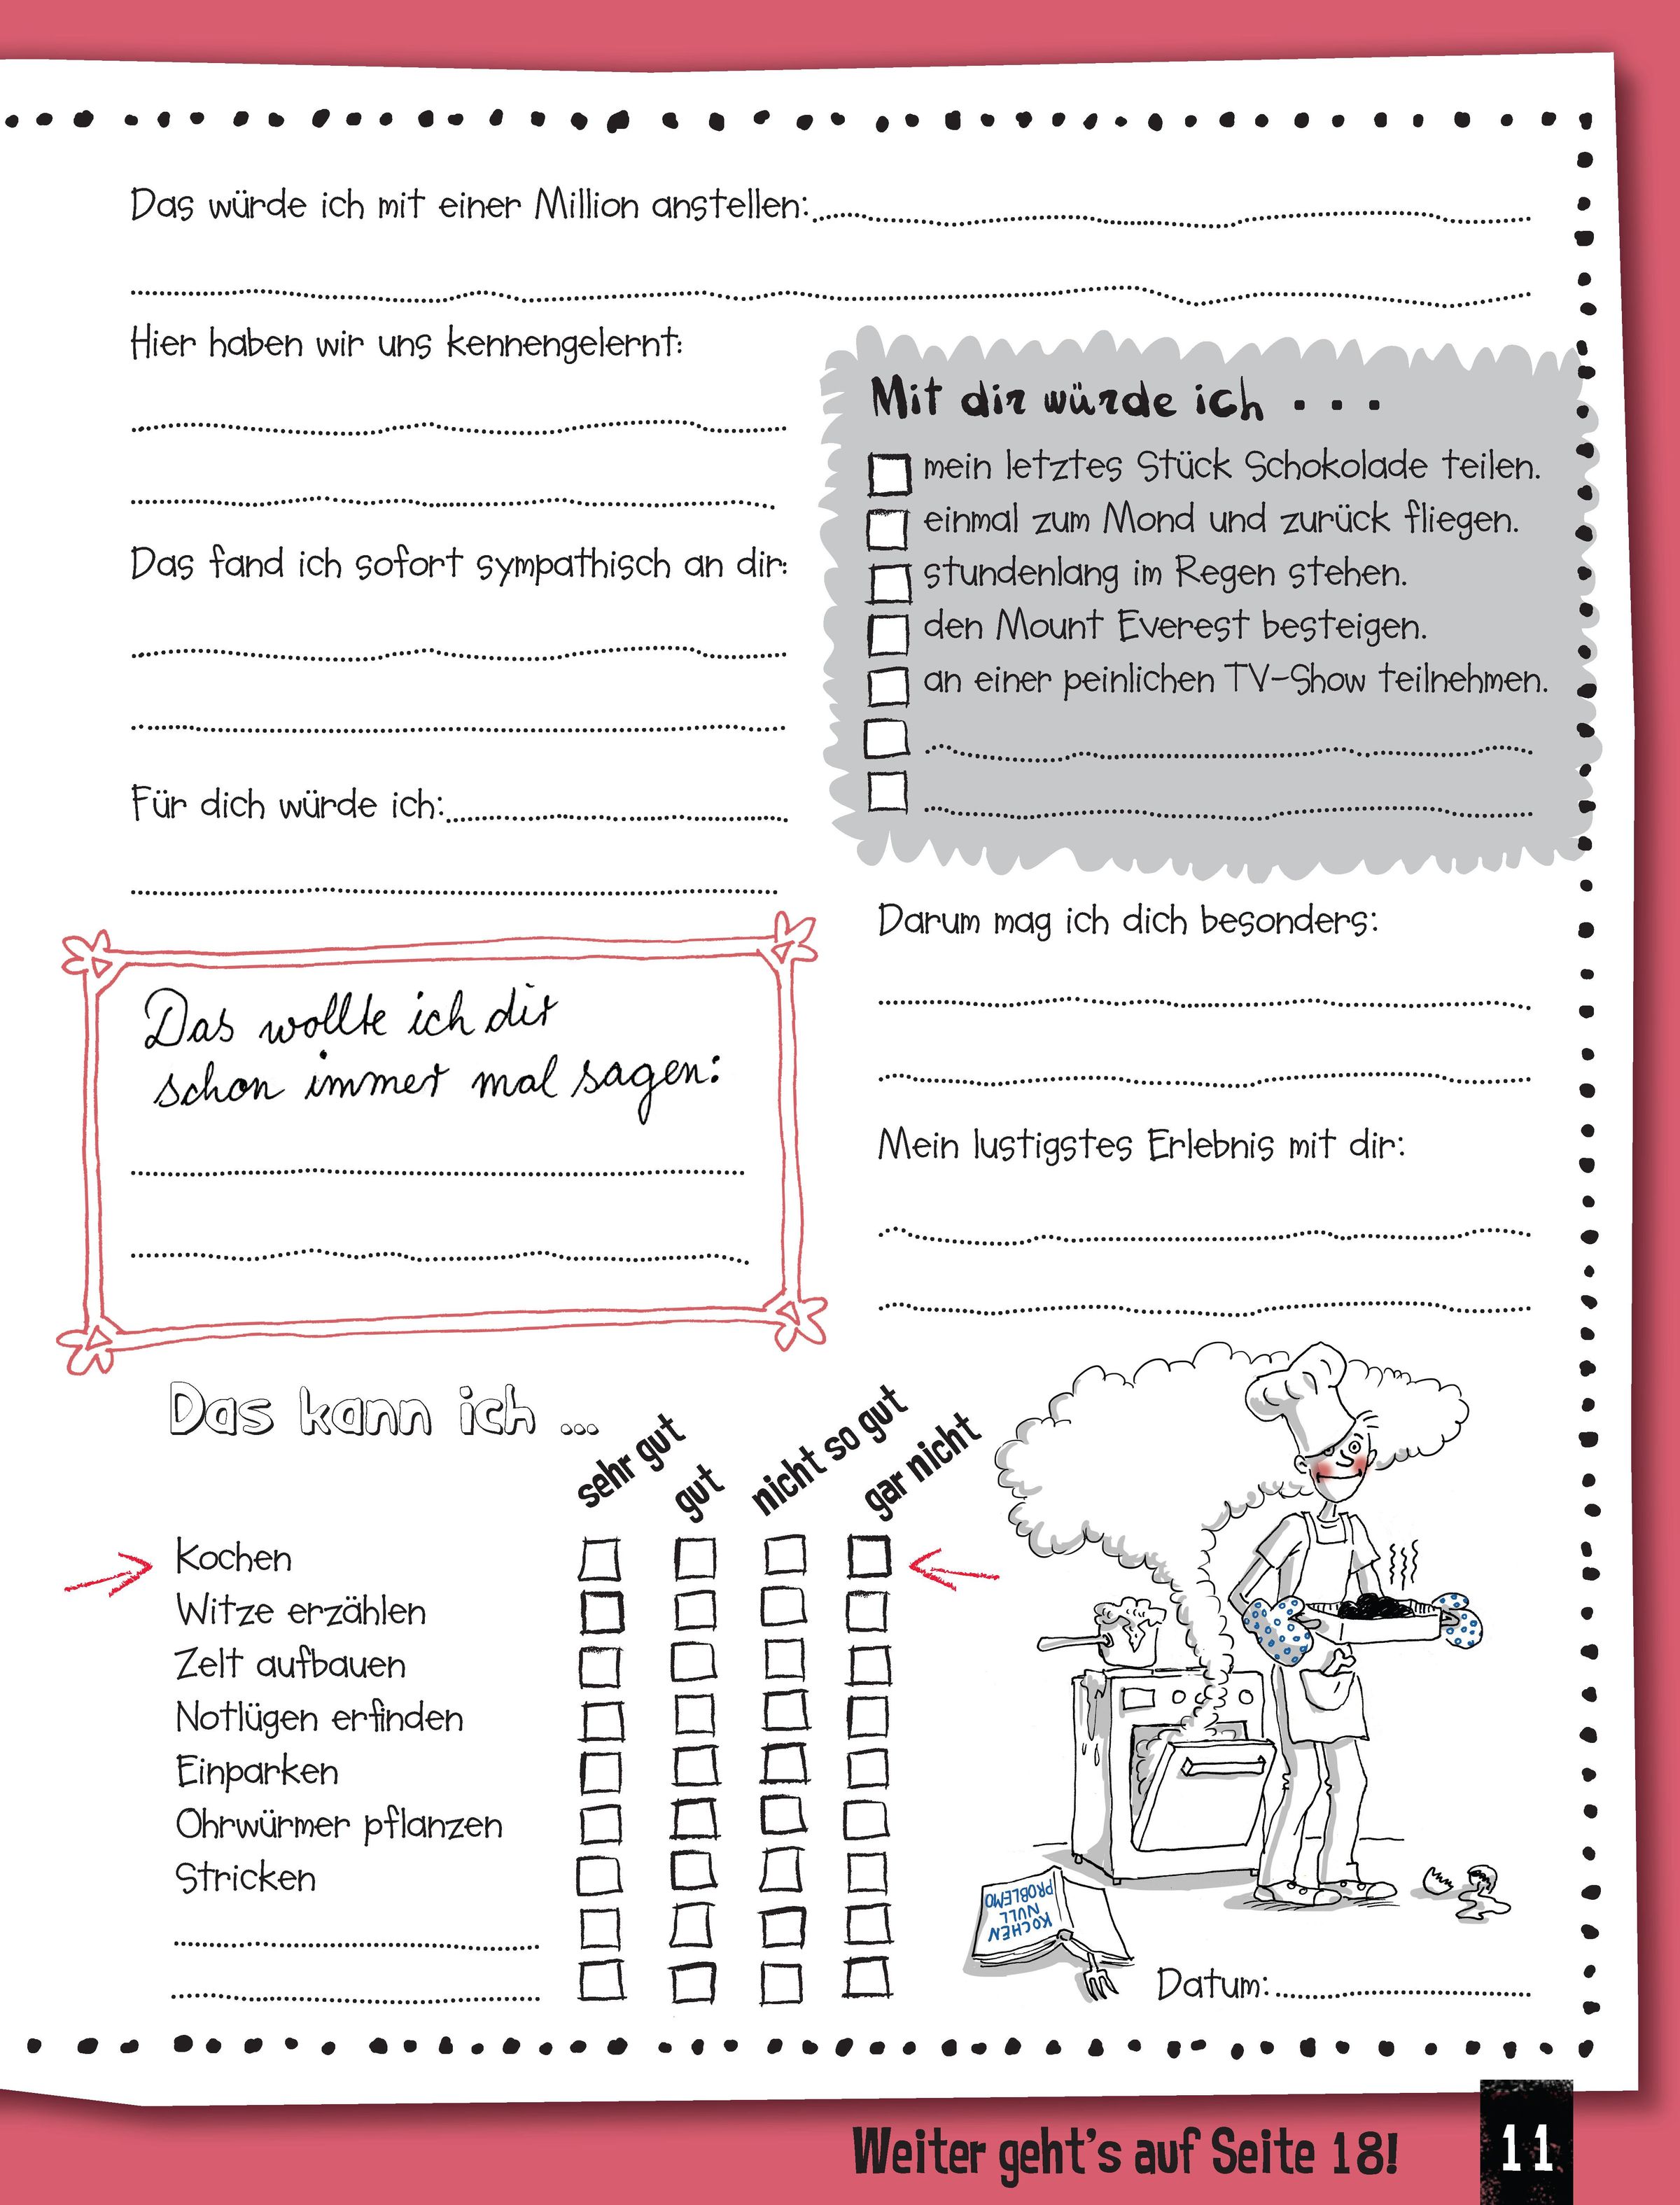 Das würde ich mit einer Million anstellen:
Hier haben wir uns kennengelernt:
Das fand ich sofort sympathisch an dir:
Für dich würde ich:
Mit dir würde ich . . .
mein letztes Stück Schokolade teilen.
einmal zum Mond und zurück fliegen.
stundenlang im Regen stehen.
den Mount Everest besteigen.
an einer peinlichen TV-Show teilnehmen.
Das wollte ich dir
schon immer mal sagen:
Darum mag ich dich besonders:
Mein lustigstes Erlebnis mit dir:
Das kann ich ...
sehr gut
gut
nicht so gut
gar nicht
Kochen
Witze erzählen
Zelt aufbauen
Notlügen erfinden
Einparken
Ohrwürmer pflanzen
Stricken
KOCHEN
NULL
PROBLEMO
Datum:
Weiter geht's auf Seite 18!
11